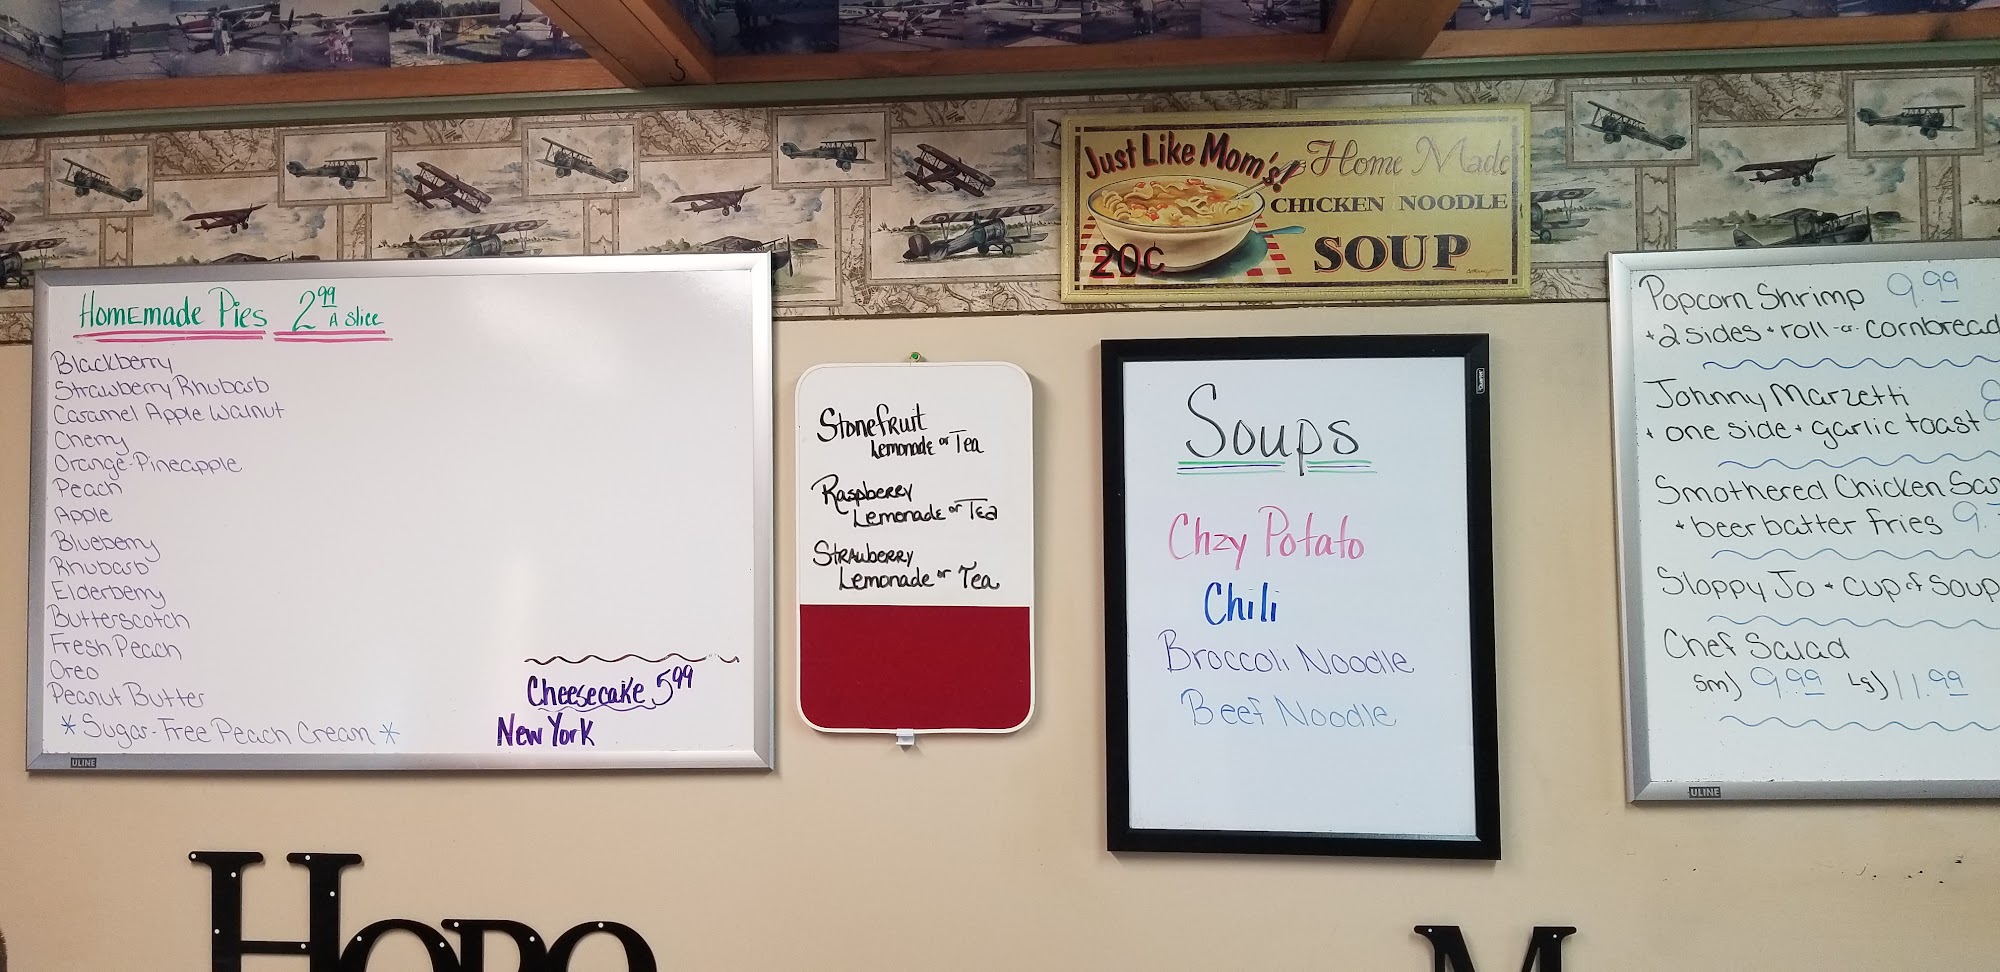 Homemade Pies 2.99 A Slice
Blackberry
Strawberry Rhubarb
Caramel Apple Walnut
Cherry
Orange-Pineapple
Peach
Apple
Blueberry
Rhubarb
Elderberry
Butterscotch
Fresh Peach
Oreo
Peanut Butter
*Sugar-Free Peach Cream*
Cheesecake 5.99
New York
ULINE
Stonefruit
Lemonade or Tea
Raspberry
Lemonade or Tea
Strawberry
Lemonade or Tea
Just Like Mom's!
Home Made
CHICKEN NOODLE
SOUP
20¢
Quartet
Soups
Chzy Potato
Chili
Broccoli Noodle
Beef Noodle
Popcorn Shrimp 9.99
+ 2 sides + roll -or- cornbread
Johnny Marzetti
+ one side + garlic toast
Smothered Chicken
+ beer batter fries 9.
Sloppy Jo + cup of soup
Chef Salad
Sm) 9.99 Lg) 11.99
ULINE
HOPO
M